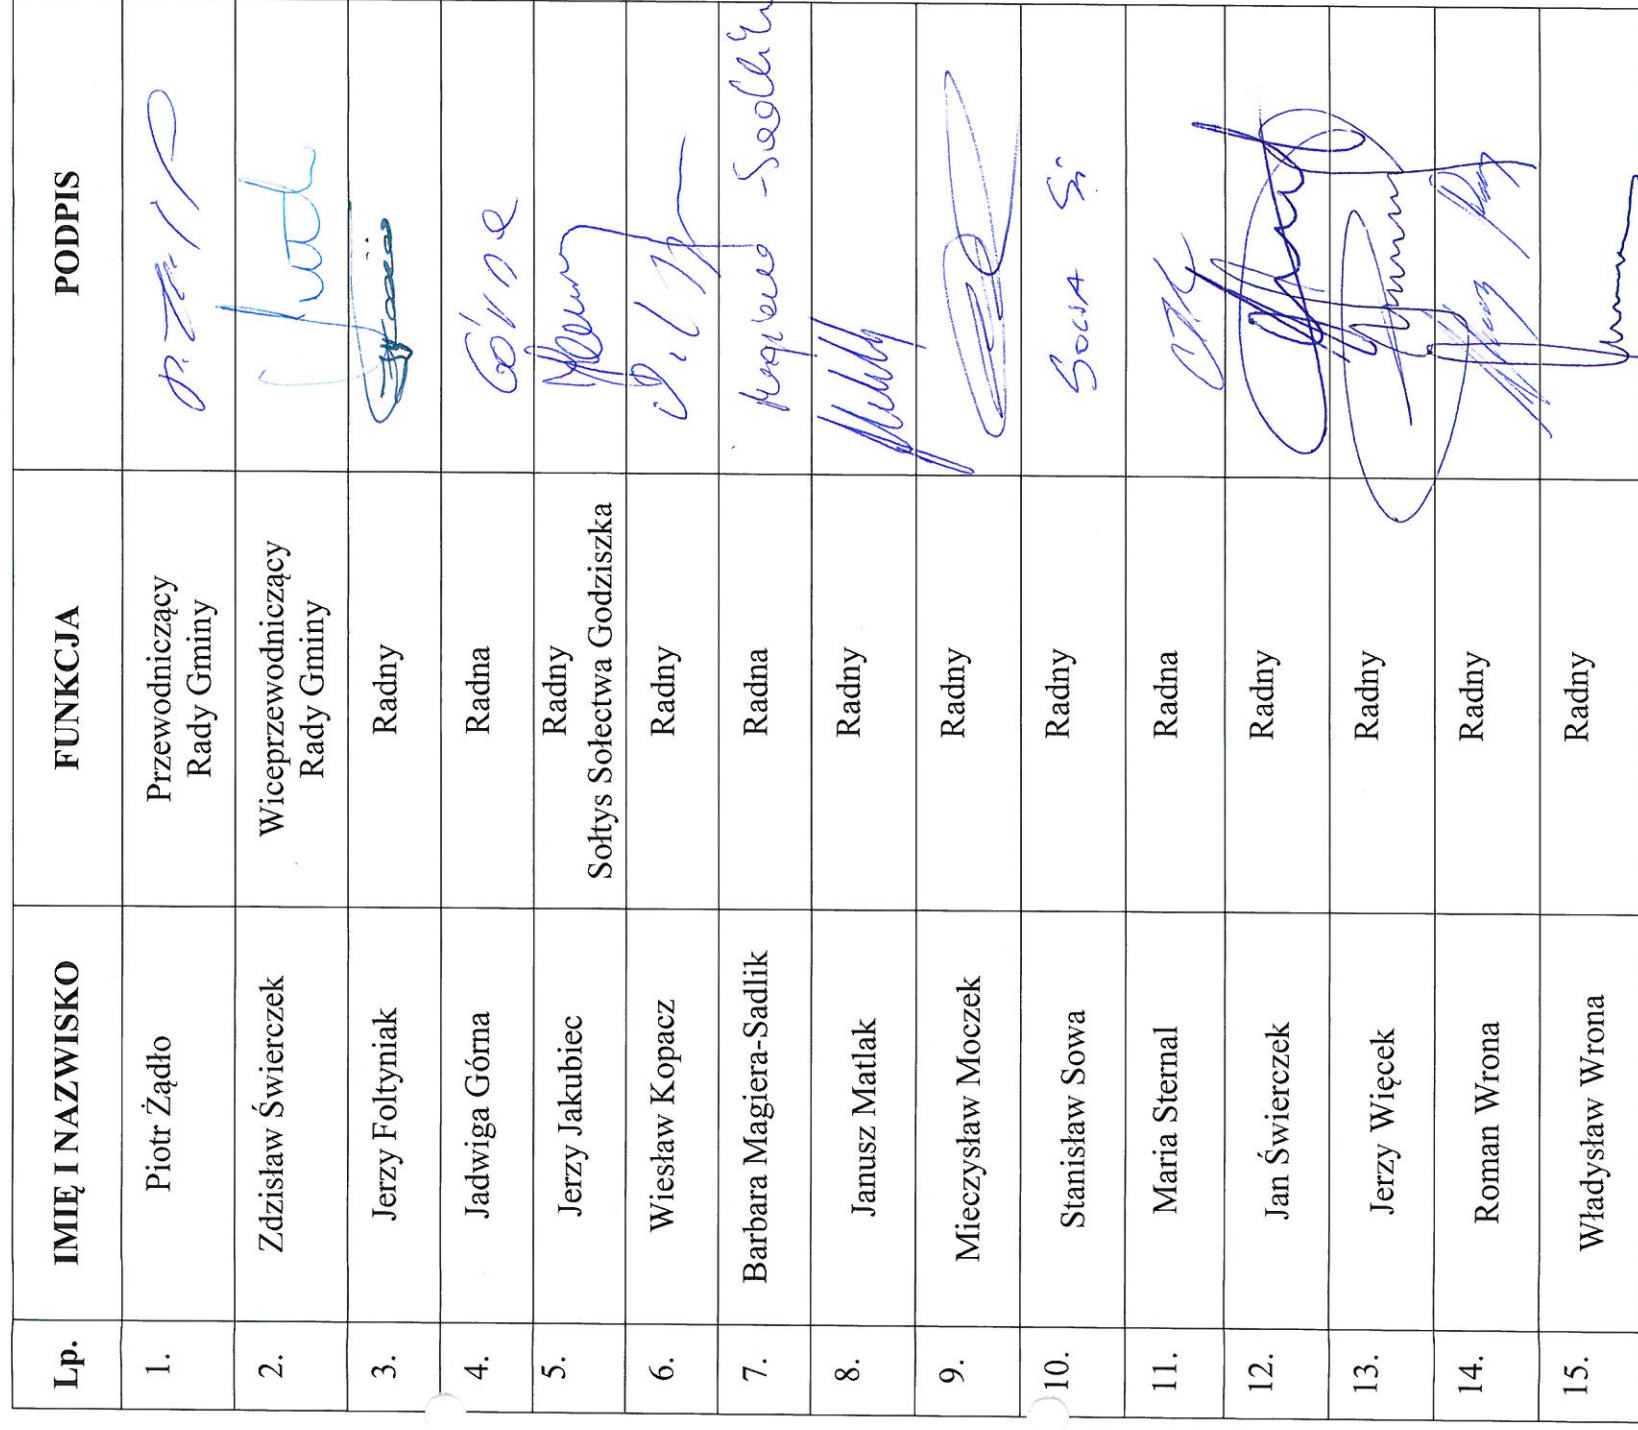 Lp. IMIĘ I NAZWISKO FUNKCJA PODPIS
1. Piotr Żądło Przewodniczący
Rady Gminy
2. Zdzisław Świerczek Wiceprzewodniczący
Rady Gminy
3. Jerzy Foltyniak Radny
4. Jadwiga Górna Radna Górna
5. Jerzy Jakubiec Radny
Sołtys Sołectwa Godziszka
6. Wiesław Kopacz Radny
7. Barbara Magiera-Sadlik Radna
8. Janusz Matlak Radny
9. Mieczysław Moczek Radny
10. Stanisław Sowa Radny
11. Maria Sternal Radna
12. Jan Świerczek Radny
13. Jerzy Więcek Radny
14. Roman Wrona Radny
15. Władysław Wrona Radny